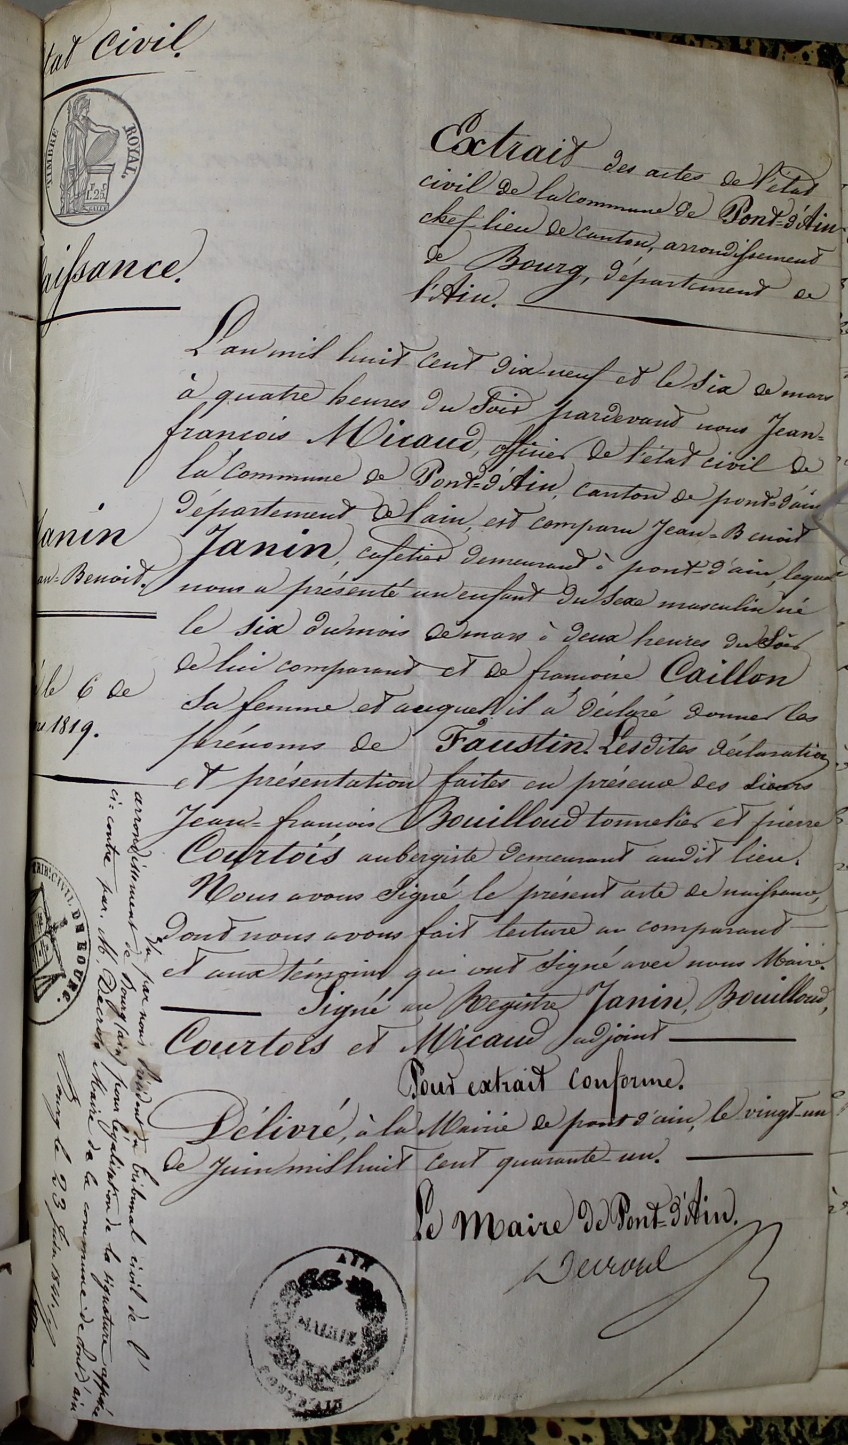 tat civil.
TIMBRE ROYAL.
1.25
aissance.
Extrait des actes de l'état
civil de la commune de Pont-d'Ain
chef-lieu de canton, arrondissement
de Bourg, département de
l'Ain.
L'an mil huit cent dix neuf et le six de mars
à quatre heures du soir pardevant nous Jean-
françois Micaud, officier de l'état civil de
la commune de Pont-d'Ain, canton de pont-d'ain
département de l'ain, est comparu Jean-Benoit
Janin, cafetier demeurant à pont-d'ain, lequel
nous a présenté un enfant du sexe masculin né
le six du mois de mars à deux heures du soir
de lui comparant et de françoise Caillon
sa femme et auquel il a déclaré donner les
prénoms de Faustin. Lesdites déclaration
et présentation faites en présence des sieurs
Jean-francois Bouilloud tonnelier et pierre
Courtois aubergiste demeurant audit lieu.
Nous avons signé le présent acte de naissance,
dont nous avons fait lecture au comparant
et aux témoins qui ont signé avec nous Maire.
Signé au Registre Janin, Bouilloud,
Courtois et Micaud adjoint
Pour extrait conforme.
Délivré, à la Mairie de pont d'ain, le vingt-un
de juin mil huit cent quarante-un.
Le Maire de Pont-d'Ain.
Janin
an-Benoit.
le 6 de
1819.
Vu par nous Président du tribunal civil de l'
arrondissement de Bourg (ain) pour légalisation de la signature apposée
ci-contre par M. Maire de la commune de Pont d'ain
Bourg le 23 Juin 1841.
TRIB. CIVIL DE BOURG.
MAIRIE
AIN